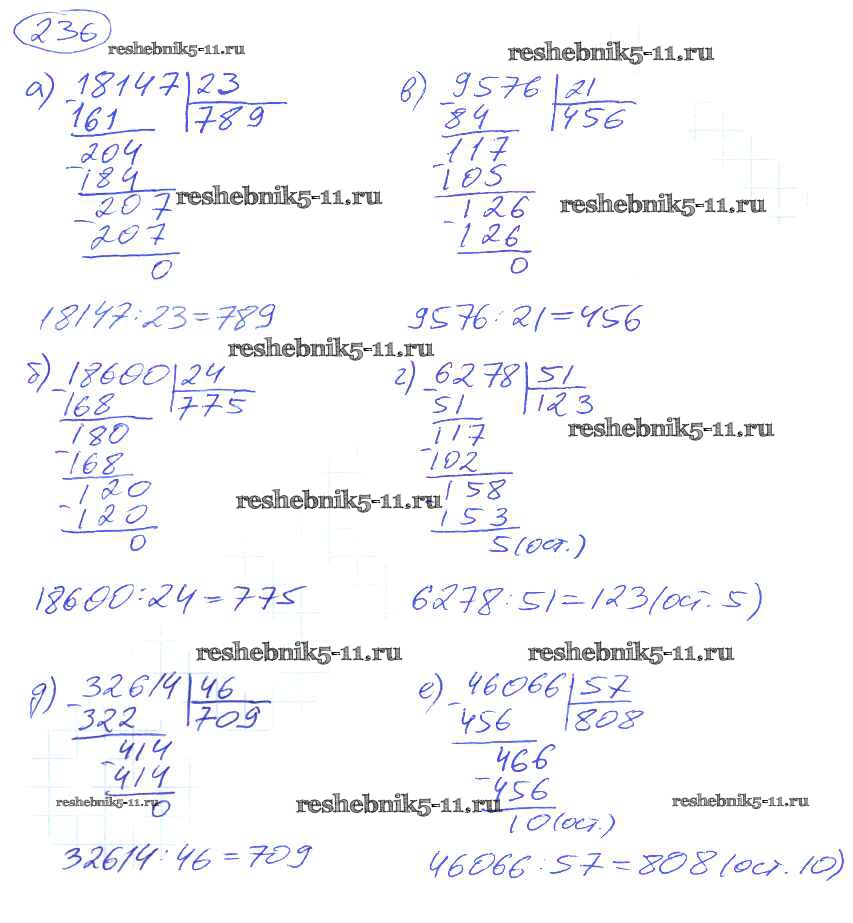 236
reshebnik5-11.ru
reshebnik5-11.ru
а) 18147 23
161 789
204
184
207
207
0
reshebnik5-11.ru
18147:23=789
в) 9576 21
84 456
117
105
126
126
0
reshebnik5-11.ru
9576:21=456
reshebnik5-11.ru
б) 18600 24
168 775
180
168
120
120
0
reshebnik5-11.ru
18600:24=775
г) 6278 51
51 123
117
102
158
153
5(ост.)
reshebnik5-11.ru
6278:51=123(ост. 5)
reshebnik5-11.ru
reshebnik5-11.ru
д) 32614 46
322 709
414
414
0
reshebnik5-11.ru
reshebnik5-11.ru
32614:46=709
е) 46066 57
456 808
466
456
10(ост.)
reshebnik5-11.ru
46066:57=808(ост. 10)